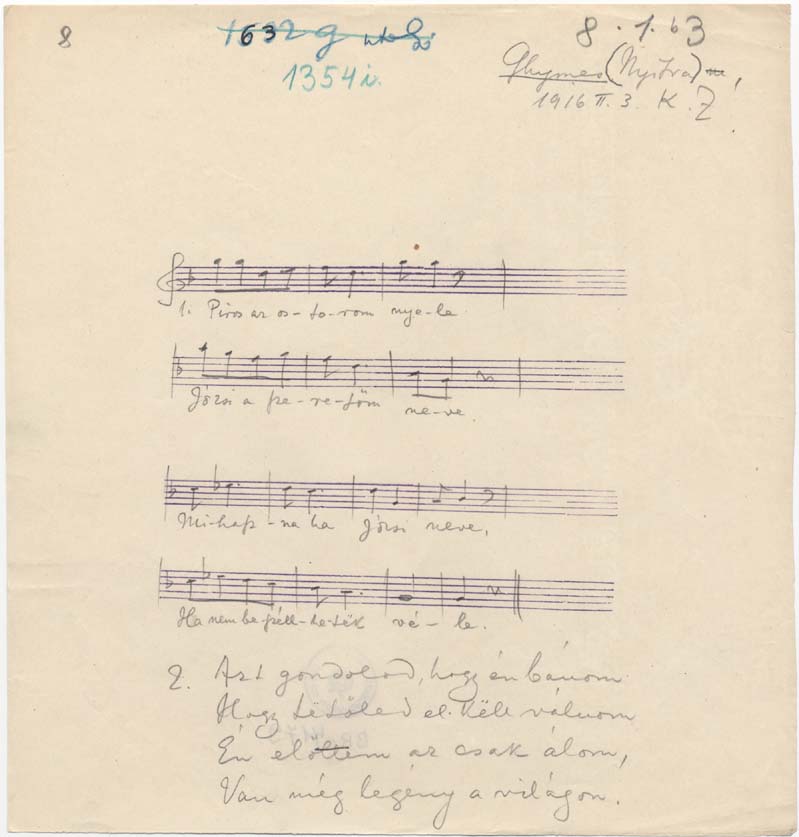 8
1632 g utolsó
1354 i.
8.1.63
Ghymes (Nyitra) m,
1916 II. 3. K. Z
1. Piros az os-to-rom nye-le
Józsi a sze-re-tőm ne-ve
Mi-hasz-na ha Józsi neve,
Ha nem be-széll-he-tëk vé-le.
2. Azt gondolod, hogy én bánom
Hogy tëtőled el këll válnom
Én előttem az csak álom,
Van még legény a világon.